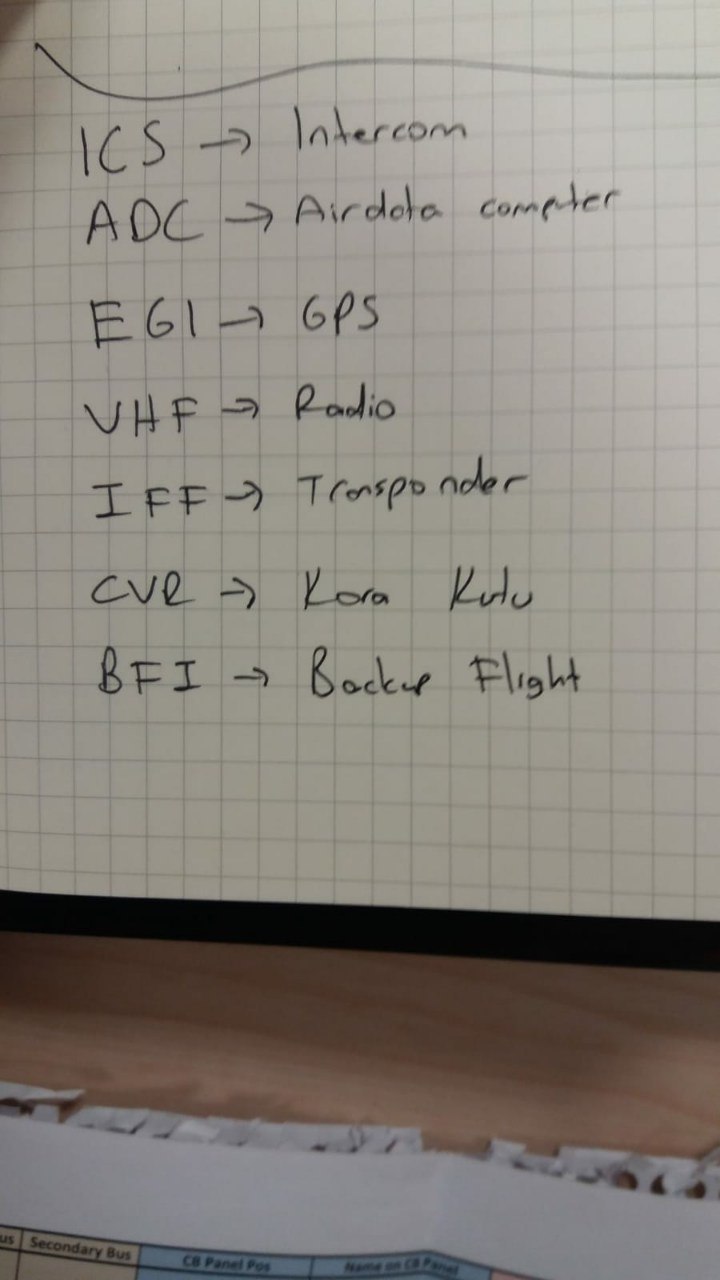 ICS → Intercom
ADC → Airdata computer
EGI → GPS
VHF → Radio
IFF → Transponder
CVR → Kara Kutu
BFI → Backup Flight
us Secondary Bus CB Panel Pos Name on CB Panel